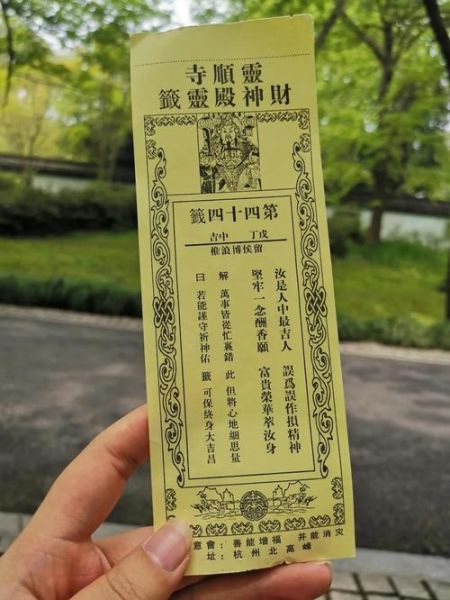 靈順寺
財神殿靈籤
第四十四籤
戊丁 中吉
留侯博浪椎
汝是人中最吉人 誤爲誤作損精神
堅牢一念酬香願 富貴榮華萃汝身
解 萬事皆從忙裏錯 此 但將心地細思量
曰 若能謹守祈神佑 籤 可保終身大吉昌
意會：善能增福 并能消灾
址：杭州北高峰